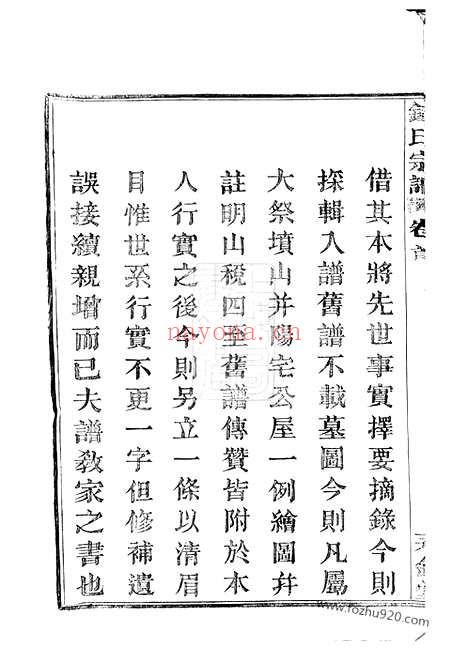 借其本將先世事實擇要摘錄今則
採輯入譜舊譜不載墓圖今則凡屬
大祭墳山并陽宅公屋一例繪圖并
註明山稅四至舊譜傳贊皆附於本
人行實之後今則另立一條以清眉
目惟世系行實不更一字但修補遺
誤接續親增而已夫譜敎家之書也
氏宗譜
卷首
nayona.cn
www.fozhu920.com